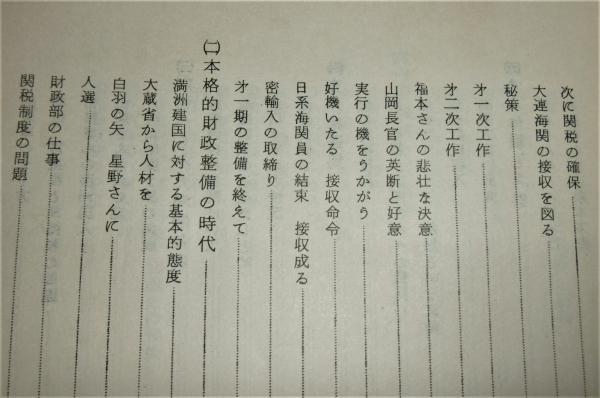 次に関税の確保
大連海関の接収を図る
秘策
才一次工作
才二次工作
福本さんの悲壮な決意
山岡長官の英断と好意
実行の機をうかがう
好機いたる　接収命令
日系海関員の結束　接収成る
密輸入の取締り
才一期の整備を終えて
㈡本格的財政整備の時代
満洲建国に対する基本的態度
大蔵省から人材を
白羽の矢　星野さんに
人選
財政部の仕事
関税制度の問題